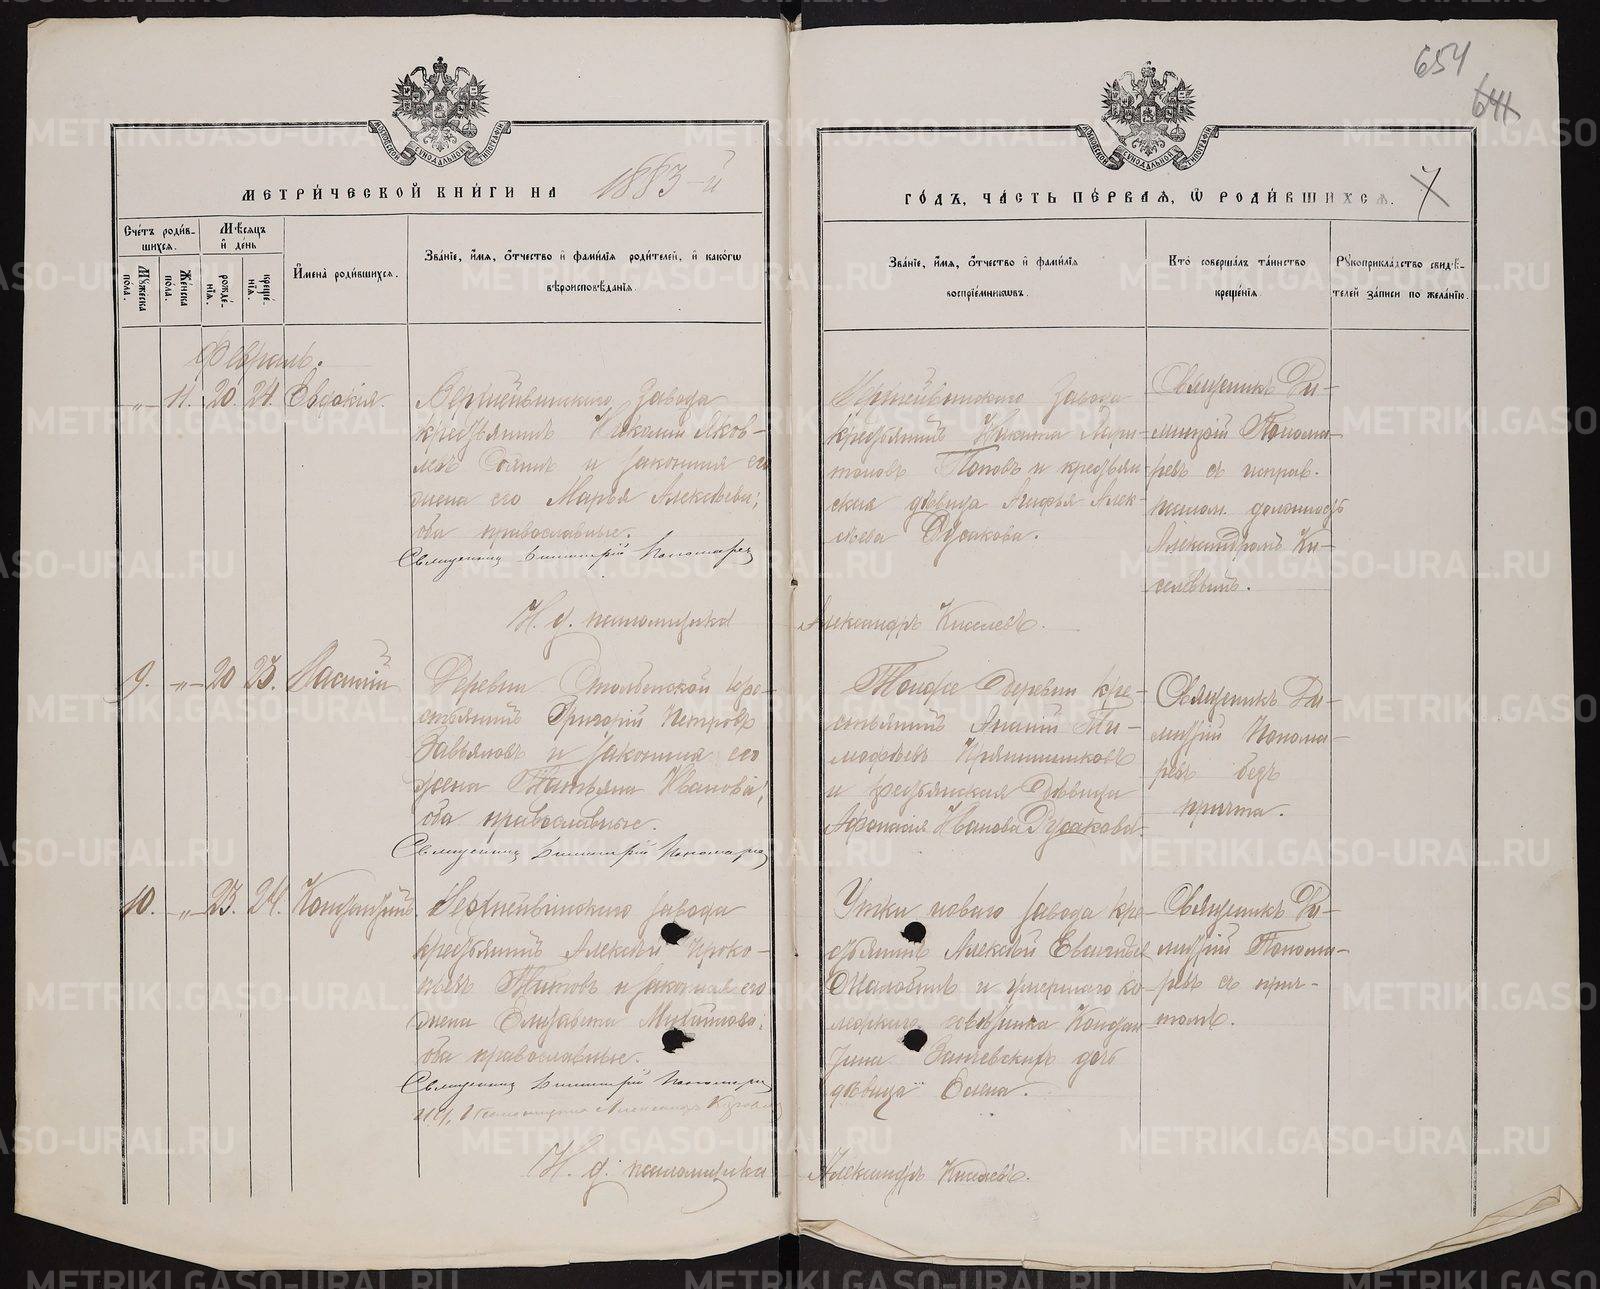 654
641
МЕТРИ́ЧЕСКОЙ КНИ́ГИ НА 1883-й
ГО́ДЪ, ЧА́СТЬ ПЕ́РВАЯ, Ѿ РОДИ́ВШИХСѦ. 7
Сче́тъ роди́в-
шихся.
Мѣ́сяцъ
и̂ де́нь
Мꙋ́жеска по́ла.
Же́нска по́ла.
рожде́-
нїя.
креще́-
нїя.
И̂мена̀ роди́вшихся.
Зва́нїе, и́мя, ѻ́тчество и̂ фами́лїя роди́телей, и̂ како́гѡ
вѣроисповѣ́данїя.
Зва́нїе, и́мя, ѻ́тчество и̂ фами́лїя
воспрїе́мникѡвъ.
Кто̀ соверша́лъ та́инство
креще́нїя.
Рꙋкоприкла́дство свидѣ́-
телей за́писи по жела́нїю.
Февраль.
-„- 11. 20. 24. Евдокія.
Верхнейвинскаго завода
крестьянинъ Николай Яков-
левъ и законная его
жена его Марья Алексѣева;
оба православные.
Священникъ Димитрій Пономарев
Верхнейвинскаго завода
крестьянинъ Никита Хари-
тоновъ Поповъ и крестьян-
ская дѣвица Агафья Алек-
сѣева Дудакова.
Священникъ Ди-
митрій Понома-
ревъ съ исправ.
псалом. должность
Александромъ Ки-
селевымъ.
И. д. псаломщика Александръ Киселевъ.
9. -„- 20 23. Василій
Деревни крe-
стьянинъ Григорій Петровъ
Завьяловъ и законная его
жена Татьяна Иванова;
оба православные.
Священникъ Димитрій Пономарев
Тойже деревни кре-
стьянинъ Ананій Ти-
мофѣевъ Прянишниковъ
и крестьянская дѣвица
Афонасія Иванова Дудакова.
Священникъ Ди-
митрій Понома-
ревъ безъ
причта.
10. -„- 23. 24. Константинъ.
Верхнейвинскаго завода
крестьянинъ Алексѣй Проко-
пьевъ Титовъ и законная его
жена Елизавета Михайлова;
оба православные.
Священникъ Димитрій Пономарев
И. д. псаломщика Александръ
Утки новаго завода кре-
стьянинъ Алексѣй
и умершаго ко-
совѣтника Констан-
тина дочь
дѣвица Елена.
Священникъ Ди-
митрій Понома-
ревъ съ прич-
томъ.
И. д. псаломщика Александръ Киселевъ.